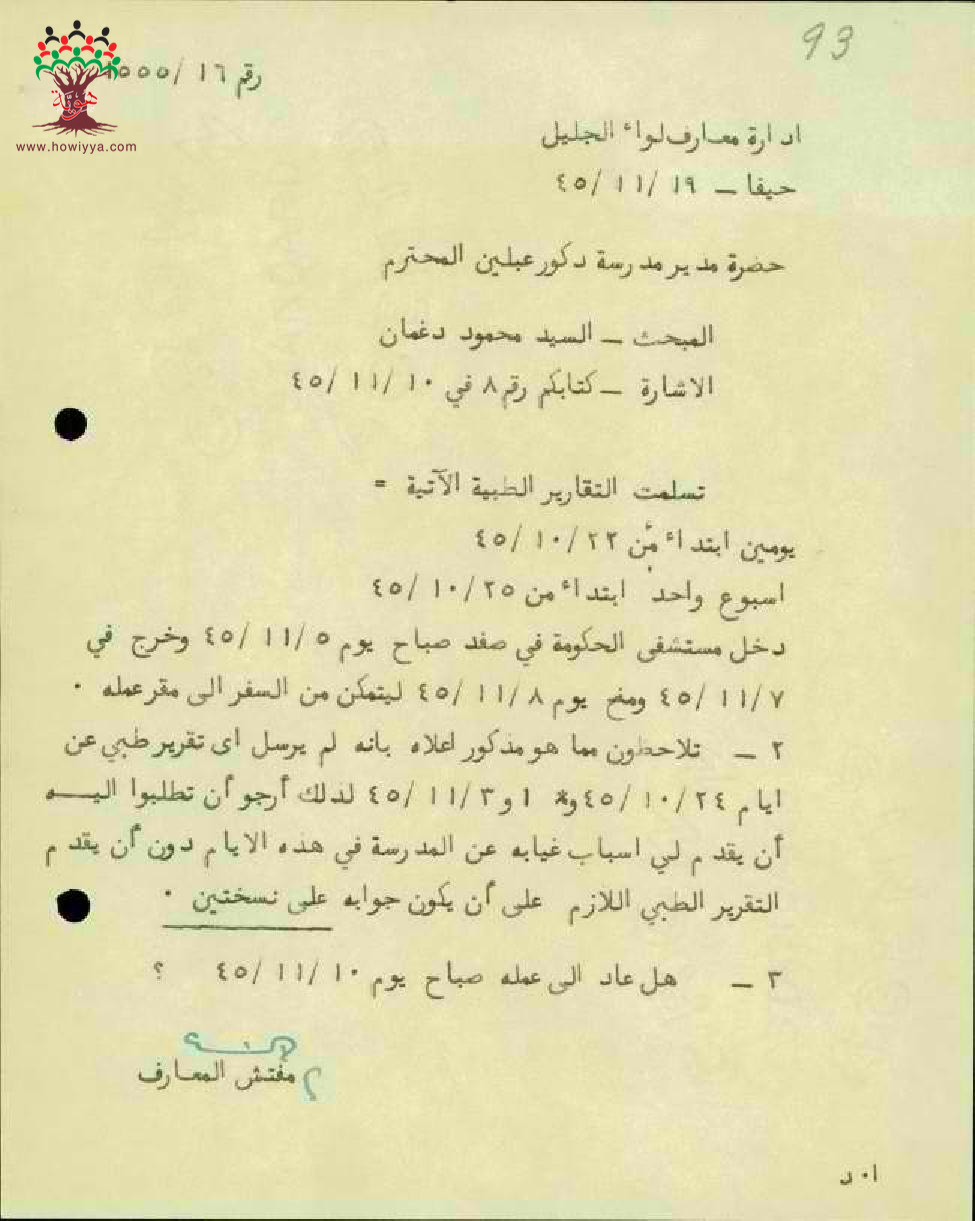 93
هوية
www.howiyya.com
رقم ١٦ /١٥٥٥
ادارة معارف لواء الجليل
حيفا – ١٩ /١١ /٤٥
حضرة مدير مدرسة دكور عبلين المحترم
المبحث – السيد محمود دغمان
الاشارة – كتابكم رقم ٨ في ١٠ /١١ /٤٥
تسلمت التقارير الطبية الآتية =
يومين ابتداء من ٢٢ /١٠ /٤٥
اسبوع واحد ابتداء من ٢٥ /١٠ /٤٥
دخل مستشفى الحكومة في صفد صباح يوم ٥ /١١ /٤٥ وخرج في
٧ /١١ /٤٥ ومنح يوم ٨ /١١ /٤٥ ليتمكن من السفر الى مقر عمله ٠
٢ – تلاحظون مما هو مذكور اعلاه بانه لم يرسل اى تقرير طبي عن
ايام ٢٤ /١٠ /٤٥ و* ١ و٣ /١١ /٤٥ لذلك أرجو أن تطلبوا اليـــه
أن يقدم لي اسباب غيابه عن المدرسة في هذه الايام دون أن يقدم
التقرير الطبي اللازم على أن يكون جوابه على نسختين ٠
٣ – هل عاد الى عمله صباح يوم ١٠ /١١ /٤٥ ؟
مفتش المعارف
ا٠ د